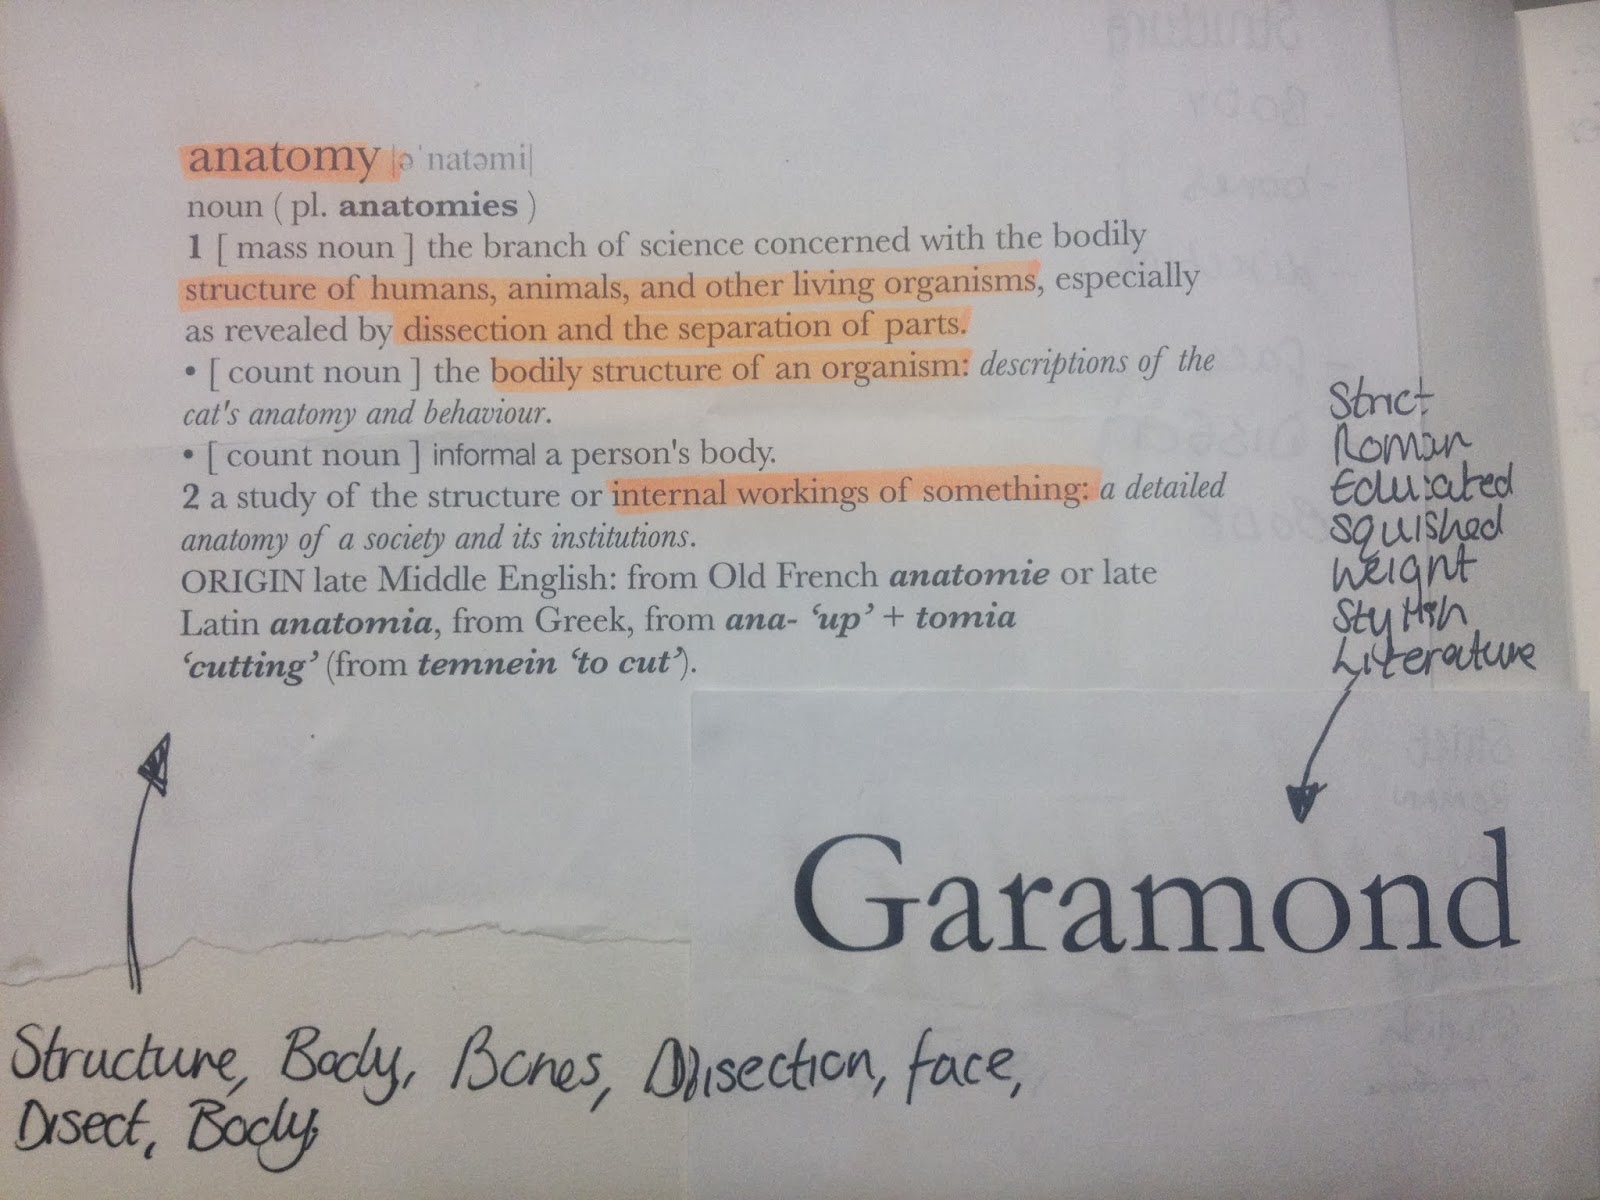 anatomy |əˈnatəmi|
noun ( pl. anatomies )
1 [ mass noun ] the branch of science concerned with the bodily
structure of humans, animals, and other living organisms, especially
as revealed by dissection and the separation of parts.
• [ count noun ] the bodily structure of an organism: descriptions of the
cat's anatomy and behaviour.
• [ count noun ] informal a person's body.
2 a study of the structure or internal workings of something: a detailed
anatomy of a society and its institutions.
ORIGIN late Middle English: from Old French anatomie or late
Latin anatomia, from Greek, from ana- ‘up’ + tomia
‘cutting’ (from temnein ‘to cut’).
Strict
Roman
Educated
squished
Weight
Stylish
Literature
Garamond
Structure, Body, Bones, Disection, face,
Disect, Body,